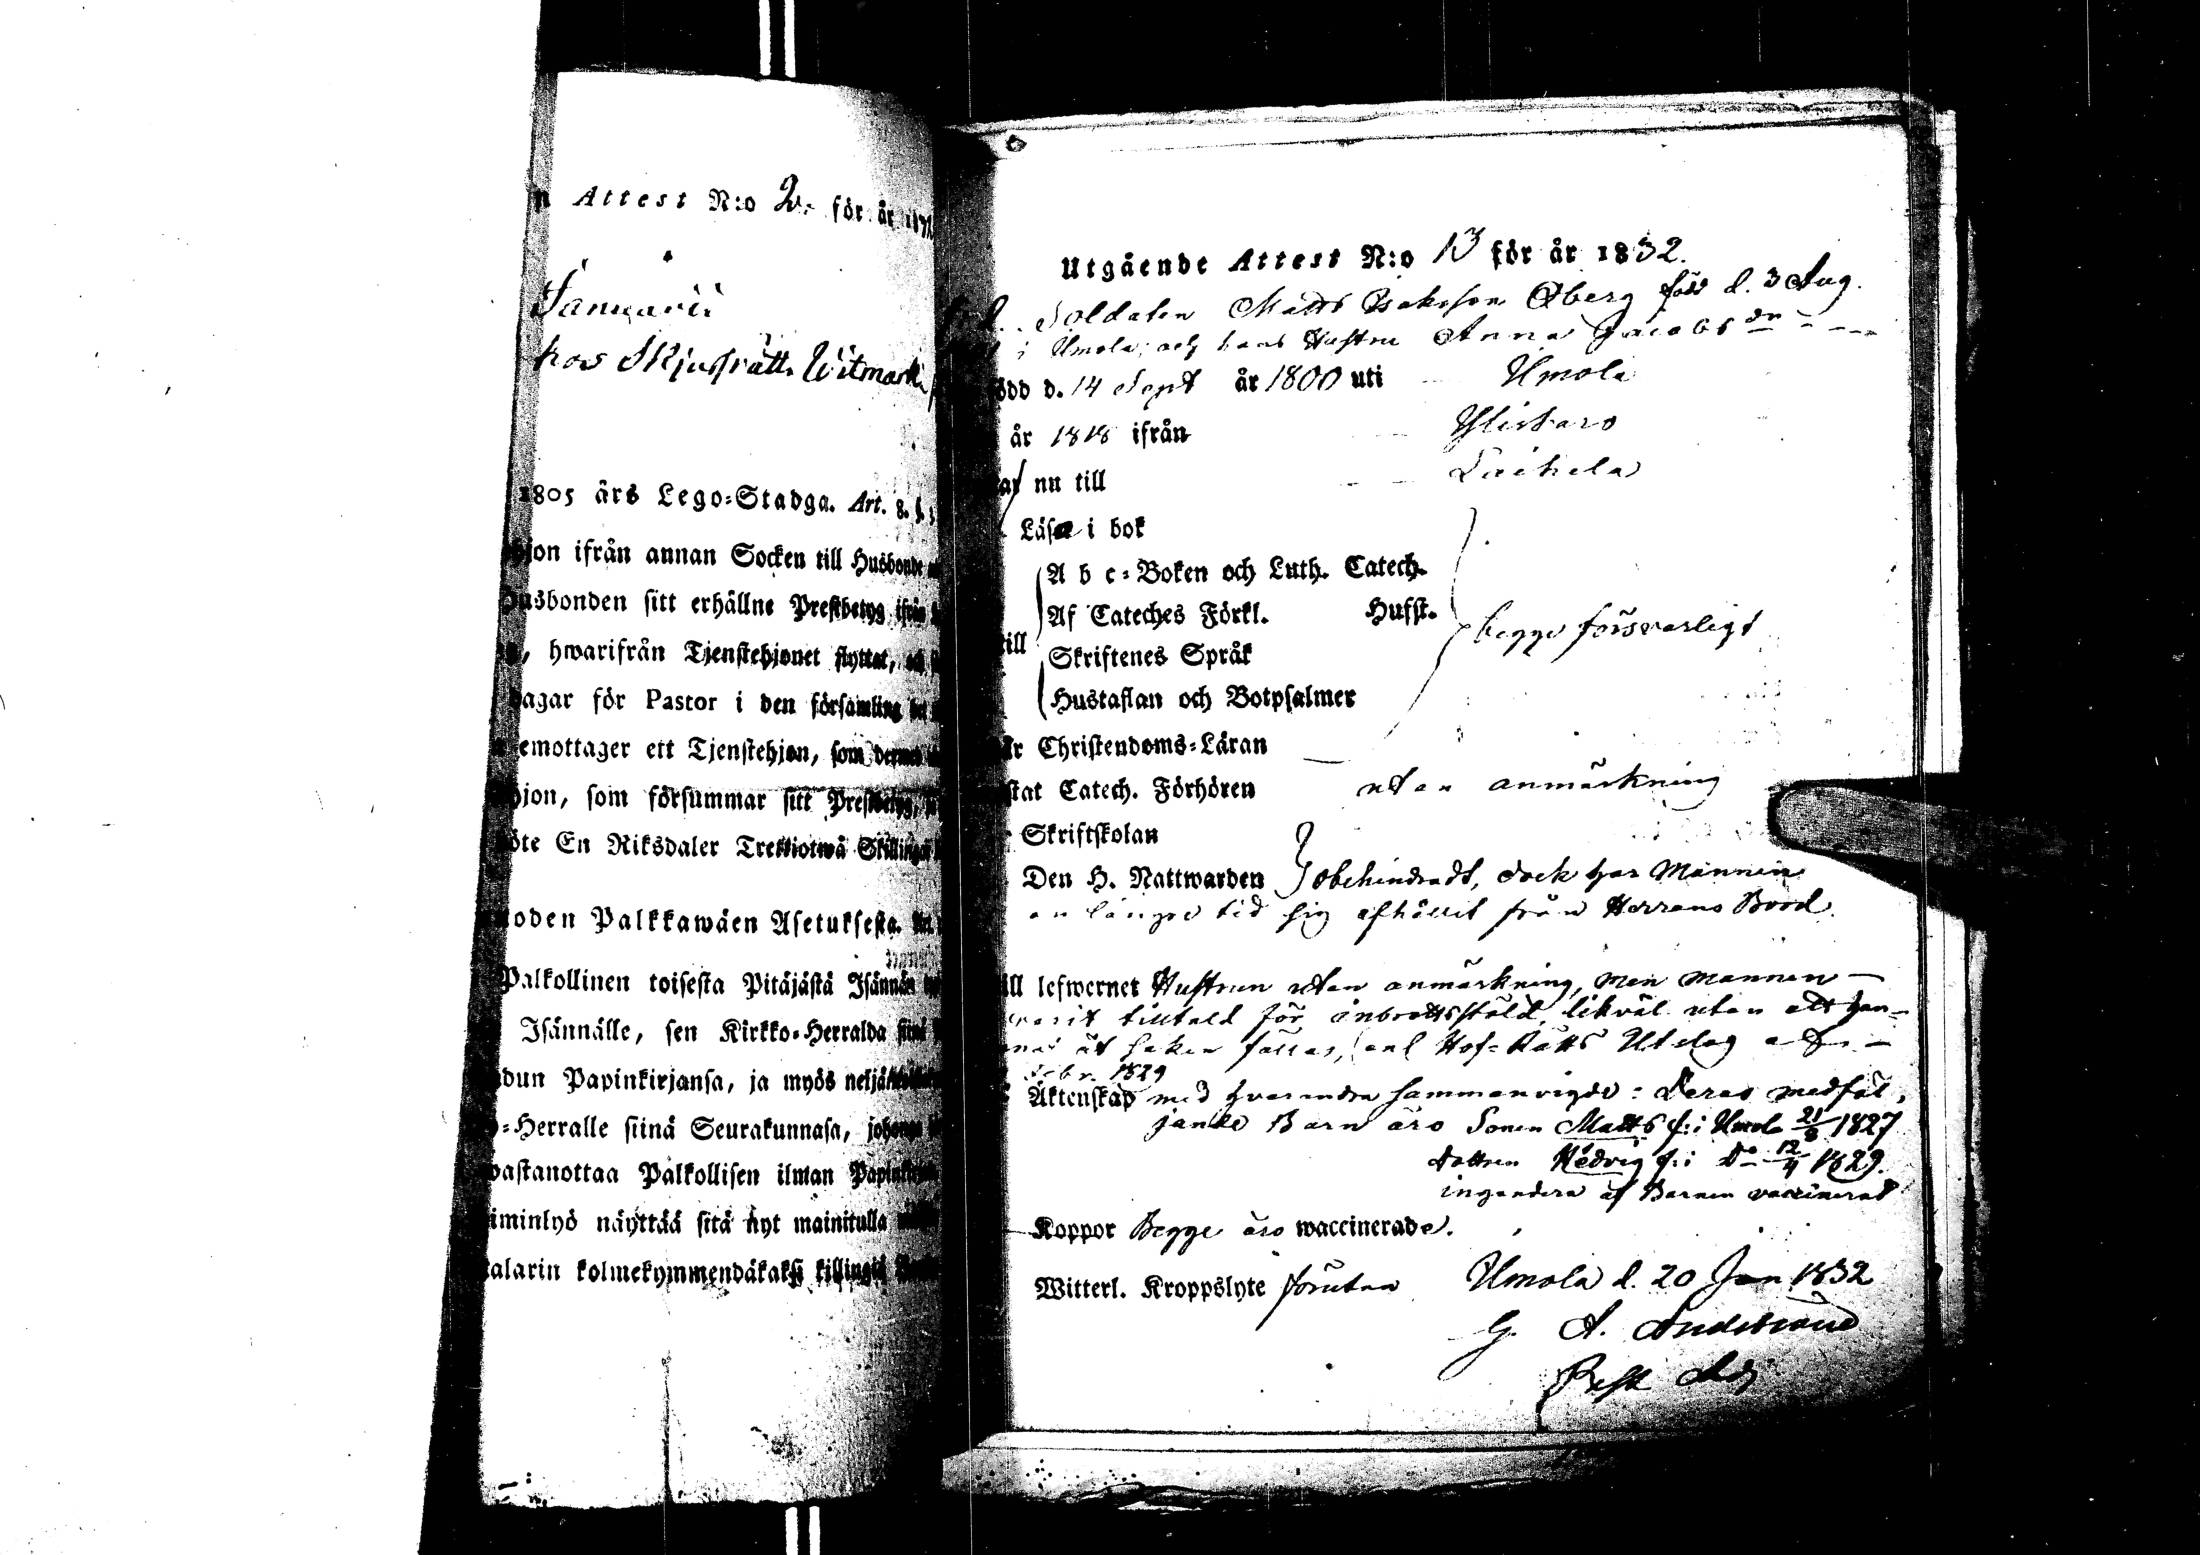 Attest N:o 2. för år 187
Januarii
hos Skjutsrätt. Witmark
1805 års Lego=Stadga. Art. 8. §.
hjon ifrån annan Socken till Husbonde
Husbonden sitt erhållne Prestbetyg ifrån
, hwarifrån Tjenstehjonet flyttat, och
dagar för Pastor i den församling det
emottager ett Tjenstehjon, som dermed
hjon, som försummar sitt Prestbetyg,
böte En Riksdaler Trettiotwå Skillingar
Wuoden Palkkawäen Asetuksesta. Art.
Palkollinen toisesta Pitäjästä Isännän
Isännälle, sen Kirkko=Herralda siinä
Papinkirjansa, ja myös neljä
=Herralle siinä Seurakunnasa, johonga
wastanottaa Palkollisen ilman Papinkirja
liminlyö näyttää sitä nyt mainitulla
talarin kolmekymmendäkaksi killingiä
Utgående Attest N:o 13 för år 1832.
Soldaten Matts Isaksson Öberg född d. 3 Aug.
i Umola, och hans Hustru Anna Jacobsdr
född d. 14 Sept år 1800 uti Umola
år 1818 ifrån Ylistaro
nu till Laihela
Läsa i bok
A b c=Boken och Luth. Catech.
Af Cateches Förkl. Husst.
till begge försvarligt
Skriftenes Språk
Hustaflan och Botpsalmer
Christendoms=Läran
Catech. Förhören utan anmärkning
Skriftskolan
Den H. Nattwarden obehindradt, dock har Mannen
en längre tid sig afhållit från Herrans Bord.
till lefwernet Hustrun utan anmärkning, men mannen
varit tilltald för inbrottsstöld, likväl utan att han
åt saken fällas, enl Hof=Rätts Utslag af
Febr. 1829
Äktenskap med hvarandra sammanvigde: Deras medföl,
jande Barn äro Sonen Matts f: i Umola 21/8 1827
dottren Hedvig f: i Do 12/4 1829.
ingendera af Barnen vaccinerad
Koppor Begge äro waccinerade.
Witterl. Kroppslyte förutan Umola d. 20 Jan 1832
G. A.